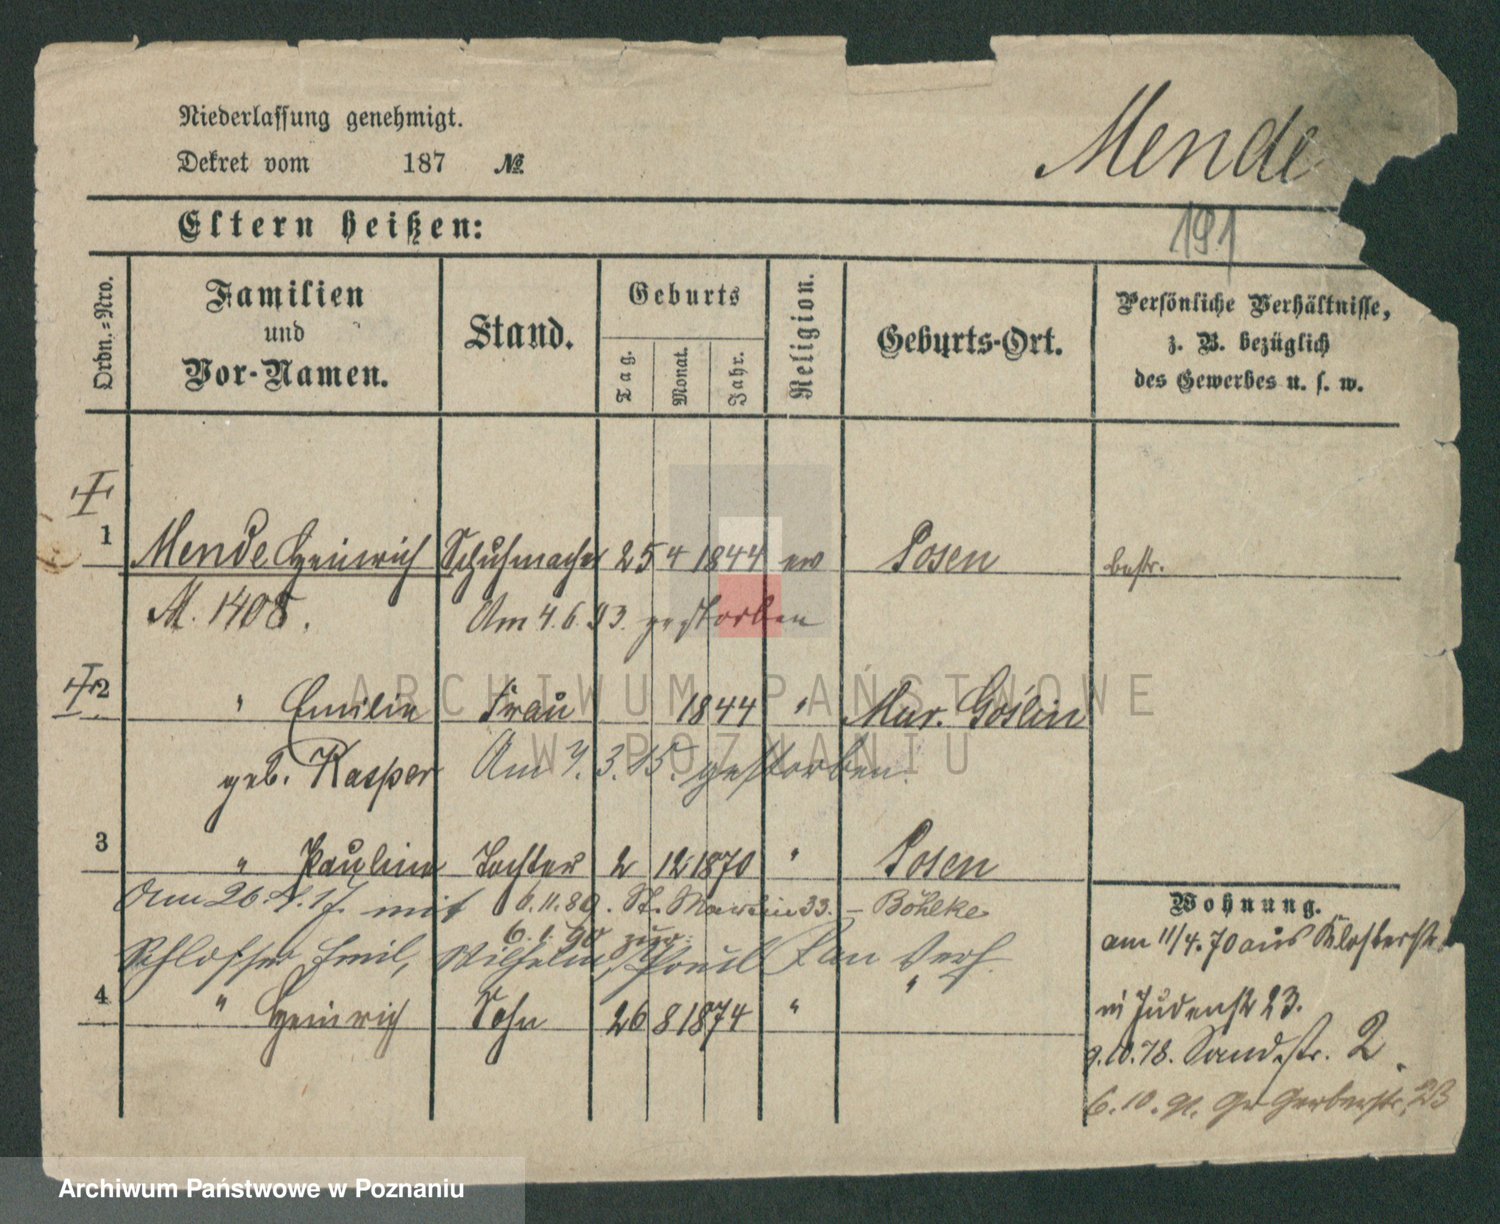 Niederlassung genehmigt.
Dekret vom 187 №
Mende
191
Eltern heißen:
Ordn.=Nro.
Familien
und
Vor-Namen.
Stand.
Geburts
Tag.
Monat.
Jahr.
Religion.
Geburts-Ort.
Persönliche Verhältnisse,
z. B. bezüglich
des Gewerbes u. s. w.
1 Mende Heinrich Schuhmacher 25 4 1844 ev Posen bestr.
M. 1408. Am 4.6.93. gestorben
2 " Emilie Frau 1844 " Mur. Goslin
geb. Kasper Am 7.3.15. gestorben.
3 " Pauline Tochter 2 12 1870 " Posen
Am 26. 17. mit 6.11.89. St. Martin 33. – Böhlke
6.1.90 zur.
Schlosser Emil, Wilhelm, Paul verh.
4 " Heinrich Sohn 26 8 1874 " "
Wohnung.
am 11/4.70 aus Klosterstr.
in Judenstr 23.
9.10.78. Sandstr. 2.
6.10. Gr Gerberstr. 23
ARCHIWUM PAŃSTWOWE
W POZNANIU
Archiwum Państwowe w Poznaniu